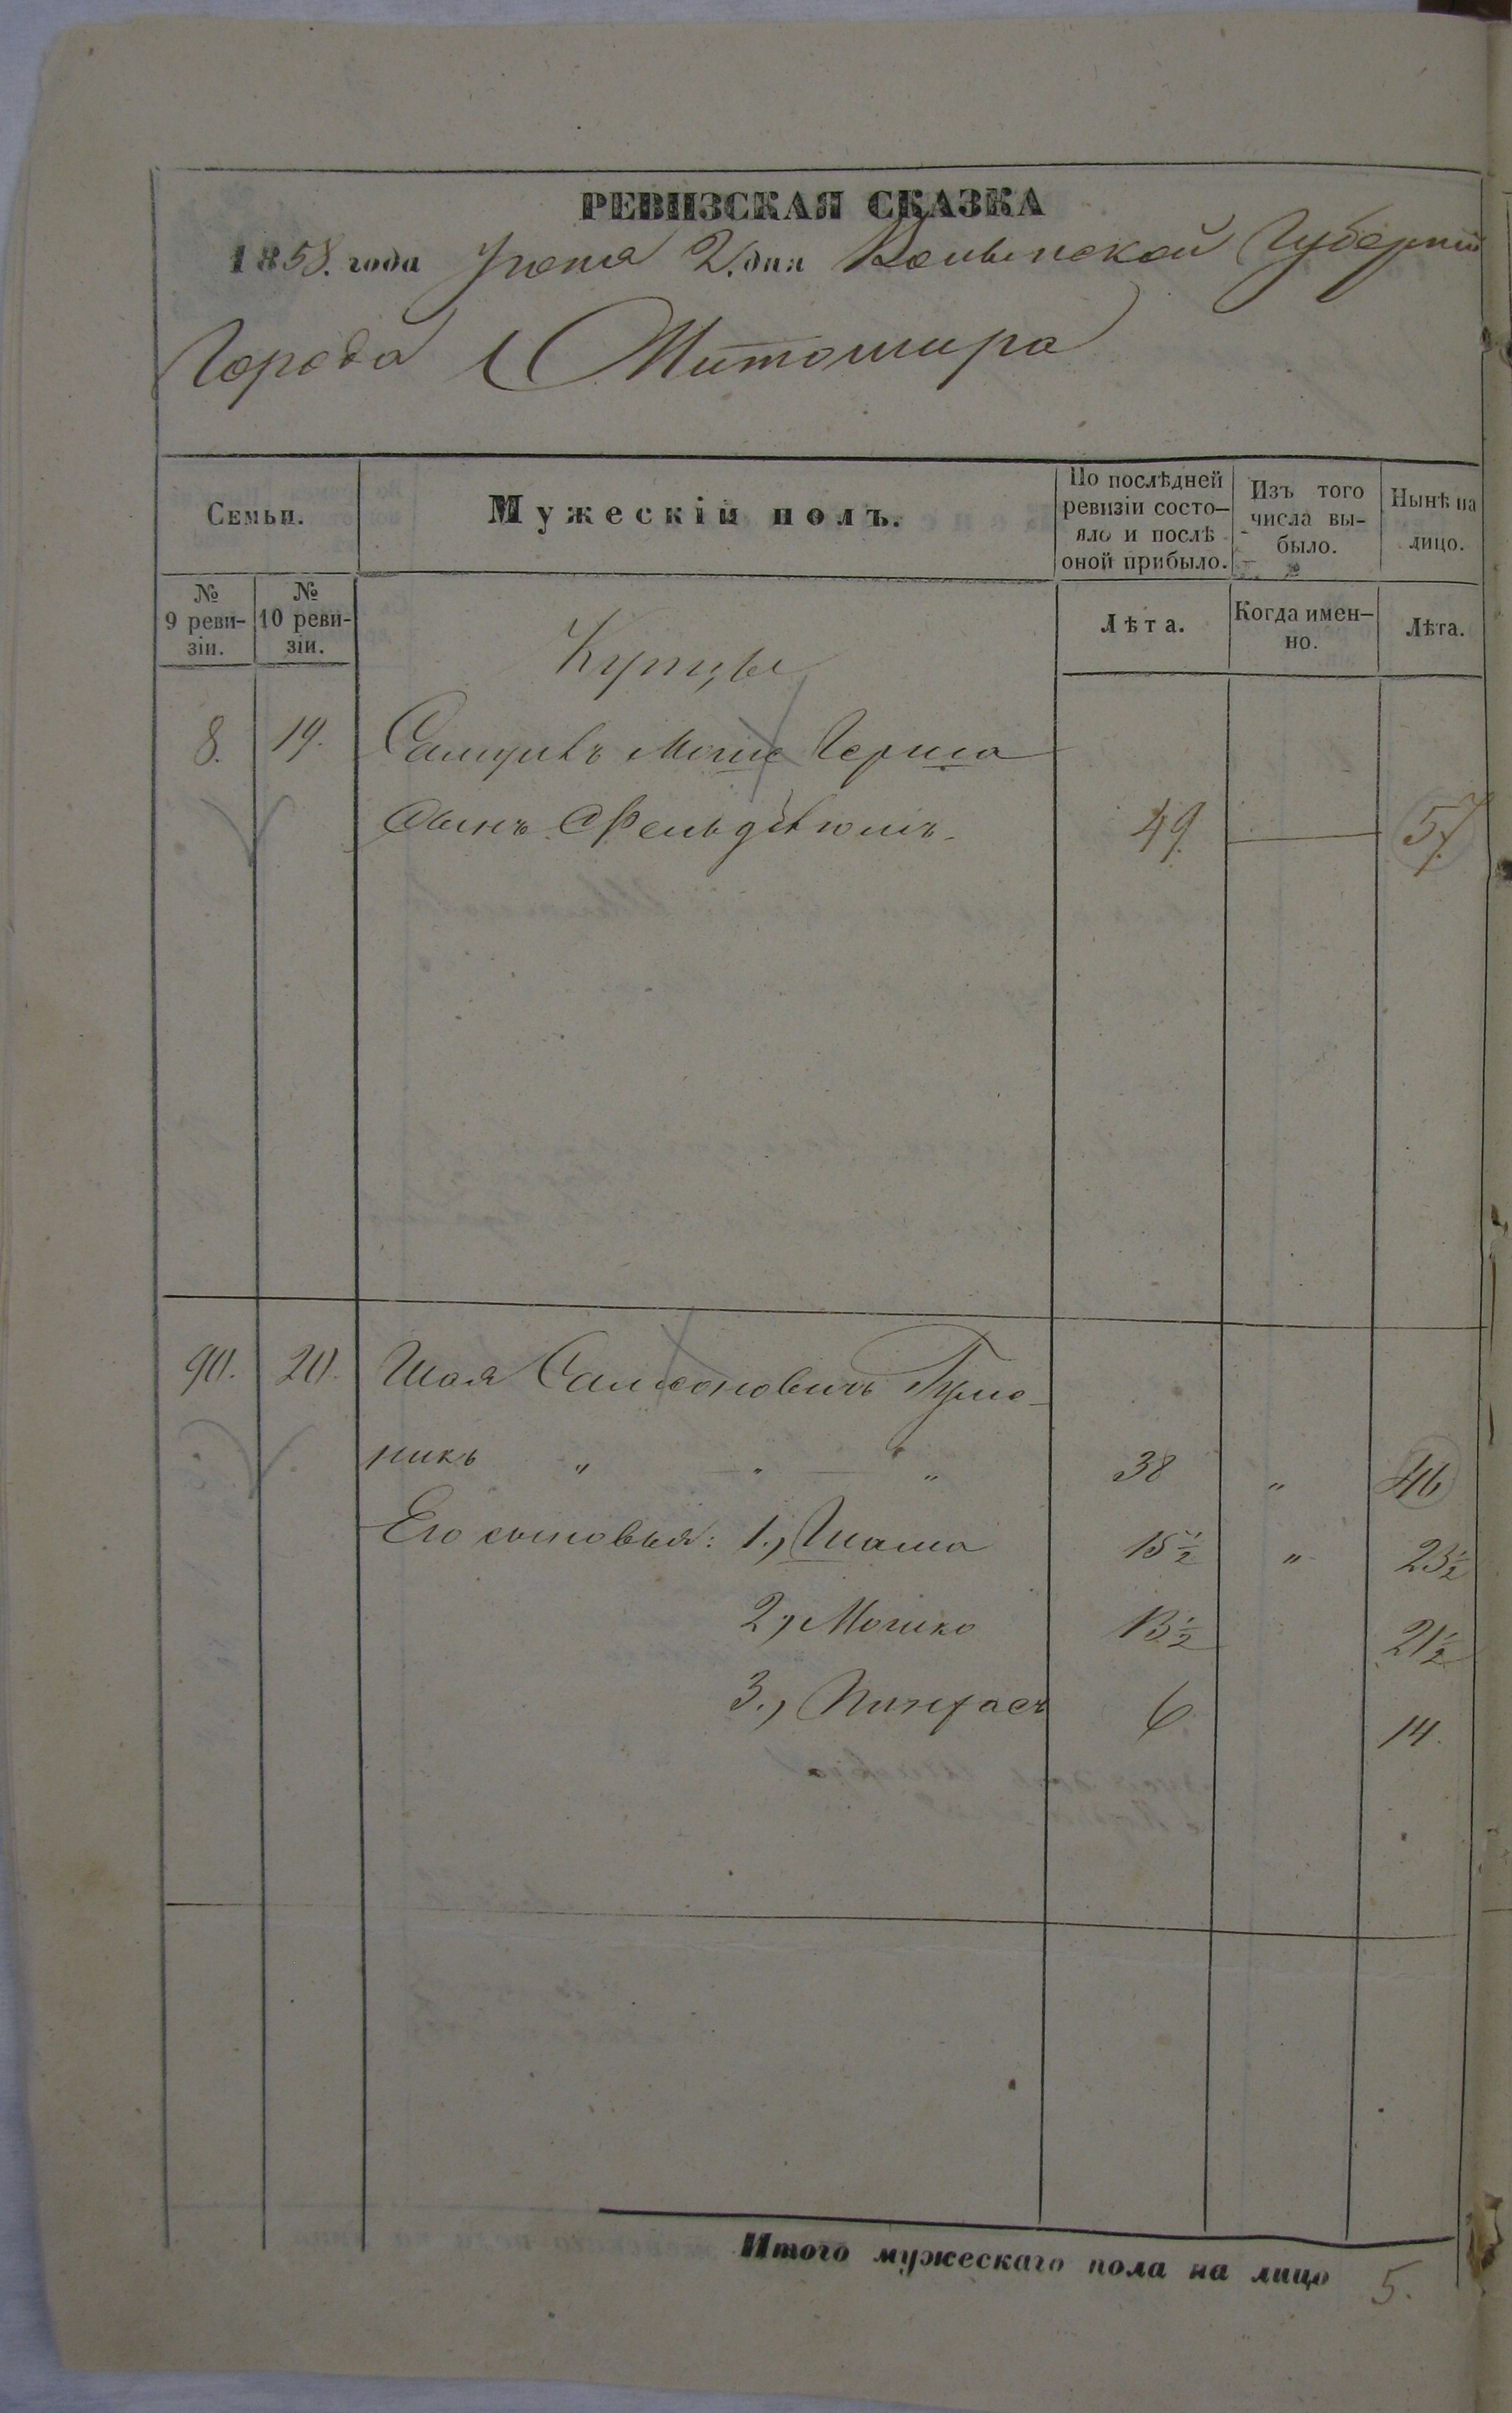 РЕВИЗСКАЯ СКАЗКА
1858. года Іюня 2. дня Волынской Губерніи
Города Житомира
Семьи.
Мужескій полъ.
По послѣдней ревизіи состо-
яло и послѣ оной прибыло.
Изъ того числа вы-
было.
Нынѣ на лицо.
№ 9 реви-
зіи.
№ 10 реви-
зіи.
Лѣта.
Когда имен-
но.
Лѣта.
Купцы
8. 19. Самуилъ Мошко Герша
Сынъ Фельдблюмъ. 49. 57.
90. 20. Шая Самсоновичъ Гуме-
никъ " " " 38 " 46
Его сыновья: 1., Шама 15½ " 23½
2, Мошко 13½ 21½
3., Пинхасъ 6 14.
Итого мужескаго пола на лицо 5.